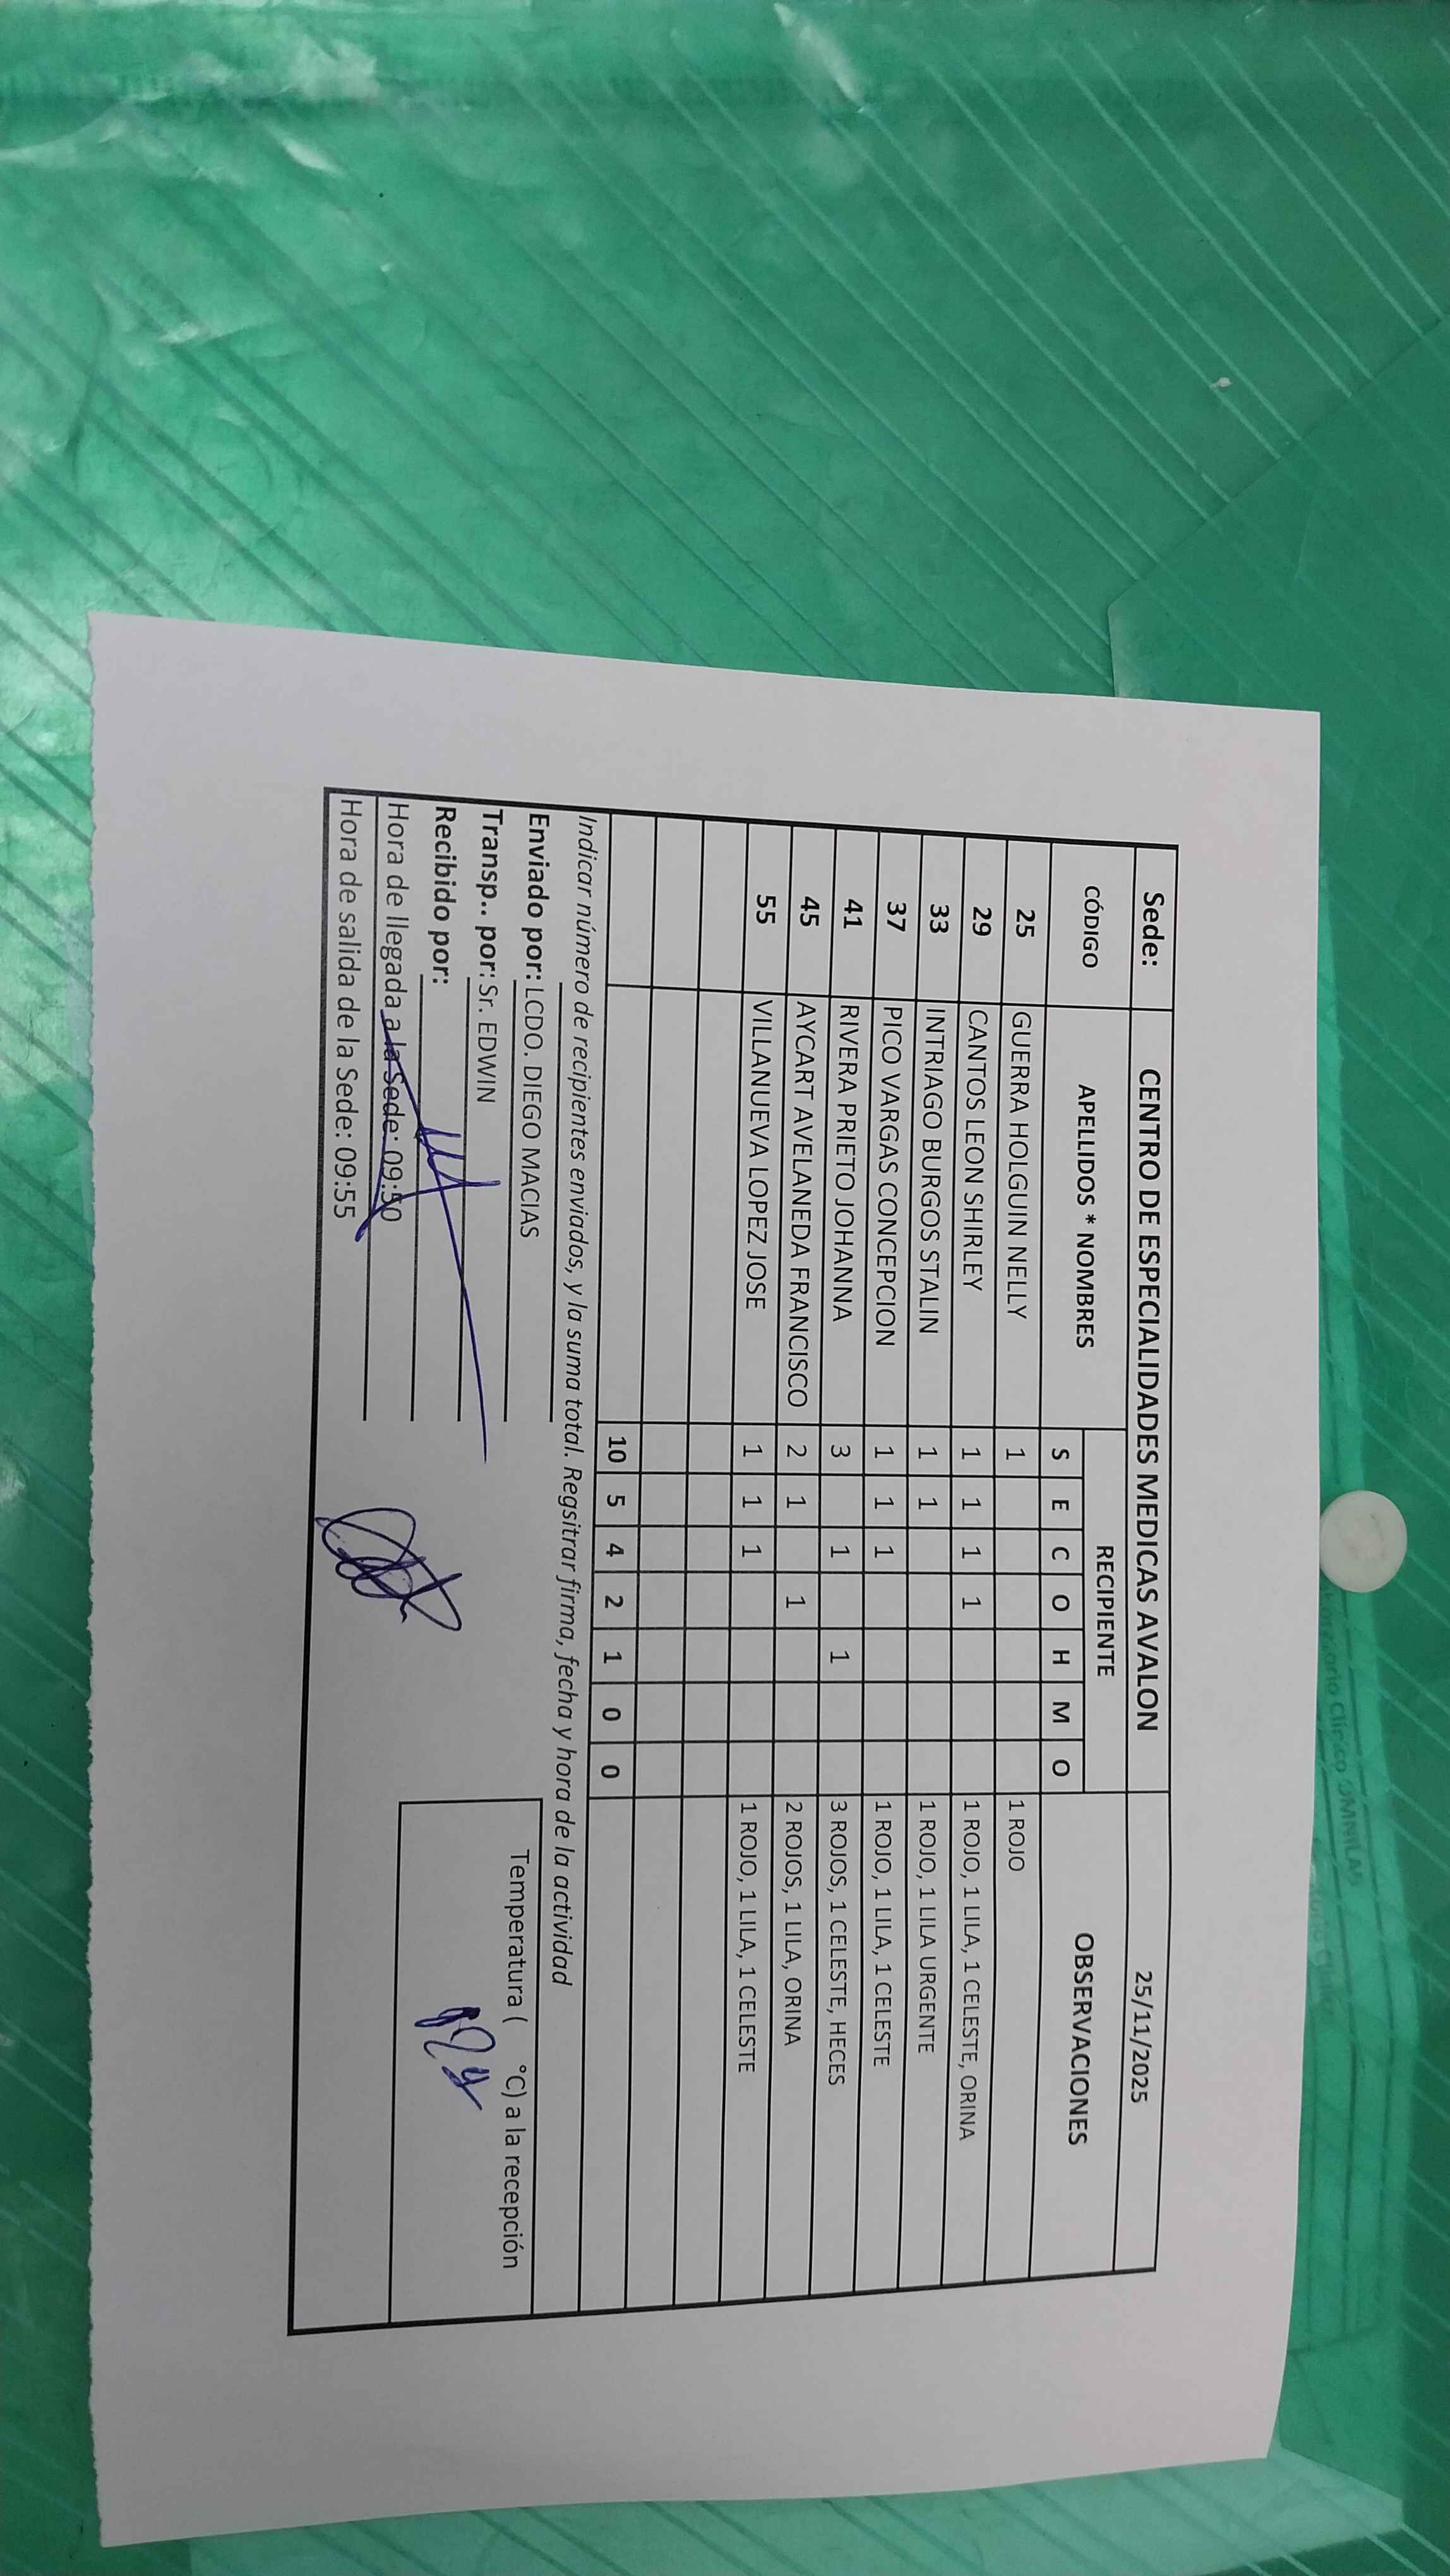 Sede: CENTRO DE ESPECIALIDADES MEDICAS AVALON 25/11/2025
CÓDIGO APELLIDOS * NOMBRES RECIPIENTE OBSERVACIONES
S E C O H M O
25 GUERRA HOLGUIN NELLY 1 1 ROJO
29 CANTOS LEON SHIRLEY 1 1 1 1 1 ROJO, 1 LILA, 1 CELESTE, ORINA
33 INTRIAGO BURGOS STALIN 1 1 1 ROJO, 1 LILA URGENTE
37 PICO VARGAS CONCEPCION 1 1 1 1 ROJO, 1 LILA, 1 CELESTE
41 RIVERA PRIETO JOHANNA 3 1 1 3 ROJOS, 1 CELESTE, HECES
45 AYCART AVELANEDA FRANCISCO 2 1 1 2 ROJOS, 1 LILA, ORINA
55 VILLANUEVA LOPEZ JOSE 1 1 1 1 ROJO, 1 LILA, 1 CELESTE
10 5 4 2 1 0 0
Indicar número de recipientes enviados, y la suma total. Regsitrar firma, fecha y hora de la actividad
Enviado por: LCDO. DIEGO MACIAS
Transp.. por: Sr. EDWIN
Temperatura ( °C) a la recepción
Recibido por:
Hora de llegada a la Sede: 09:50
Hora de salida de la Sede: 09:55
Clínico OMNILAB